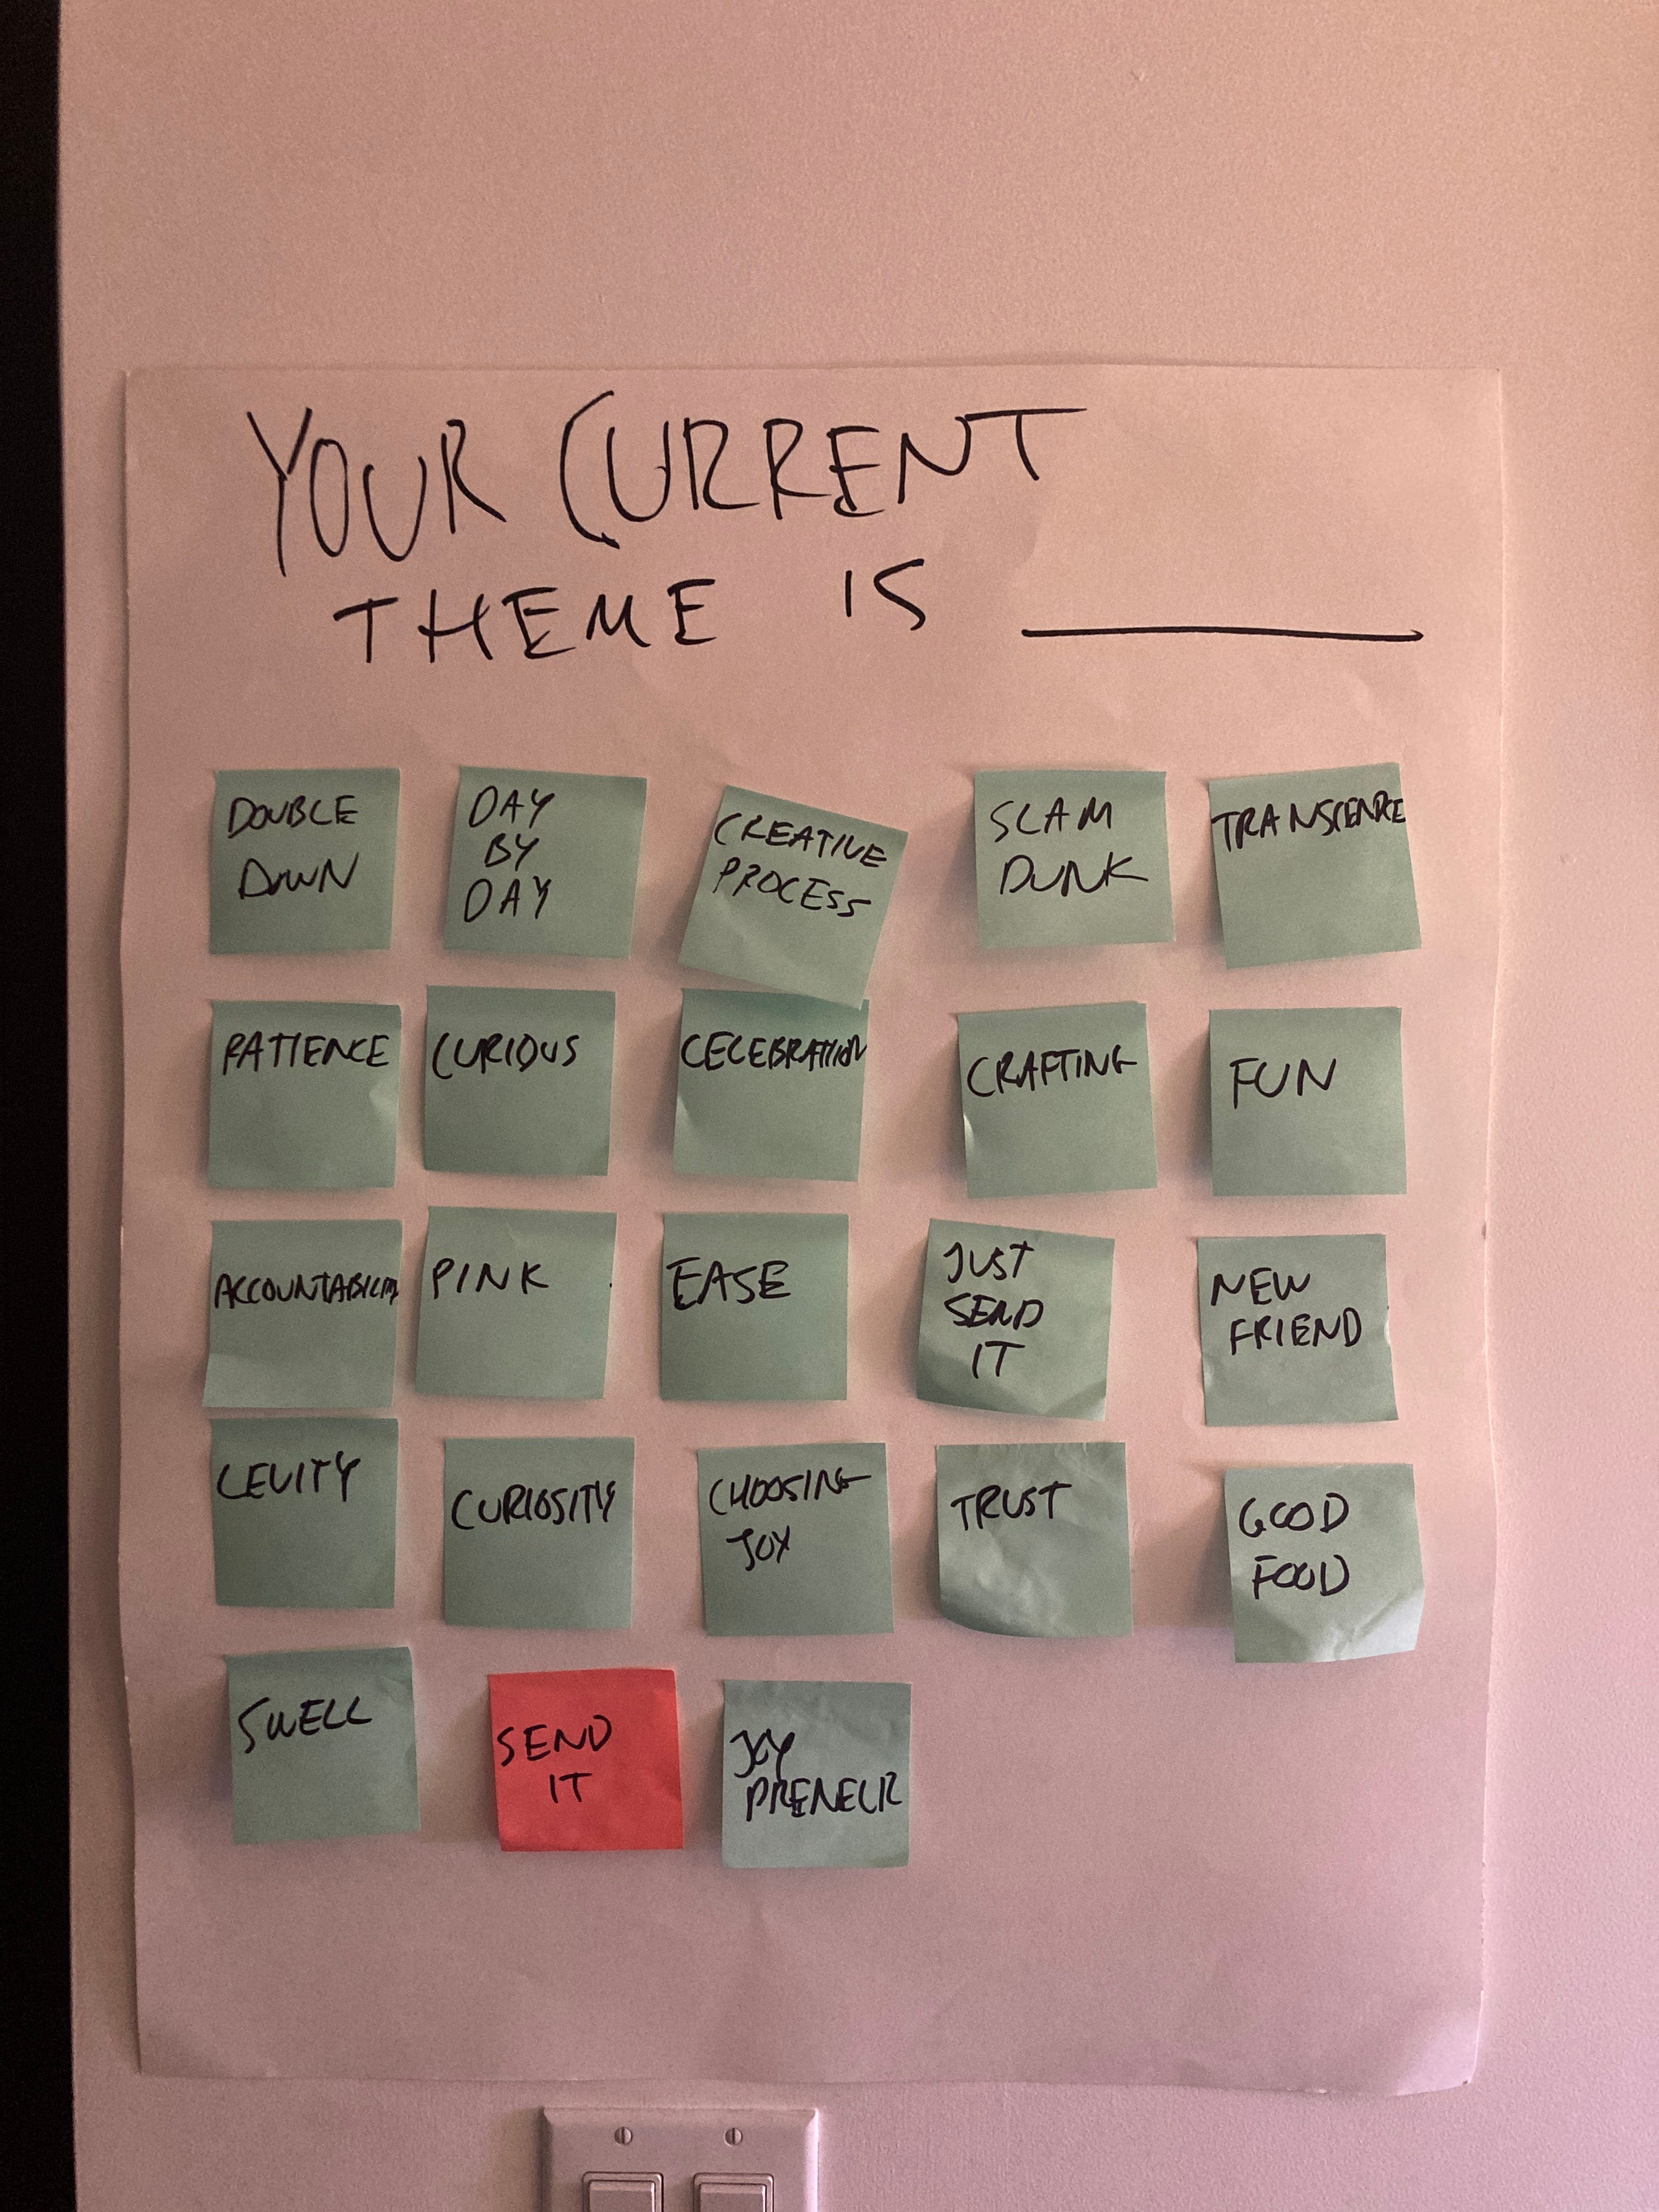 YOUR CURRENT
THEME IS
DOUBLE
DOWN
DAY
BY
DAY
CREATIVE
PROCESS
SLAM
DUNK
TRANSCENDCE
PATIENCE
CURIOUS
CELEBRATION
CRAFTING
FUN
ACCOUNTABILITY
PINK
EASE
JUST
SEND
IT
NEW
FRIEND
LEVITY
CURIOSITY
CHOOSING
JOY
TRUST
GOOD
FOOD
SWELL
SEND
IT
JOY
PRENEUR